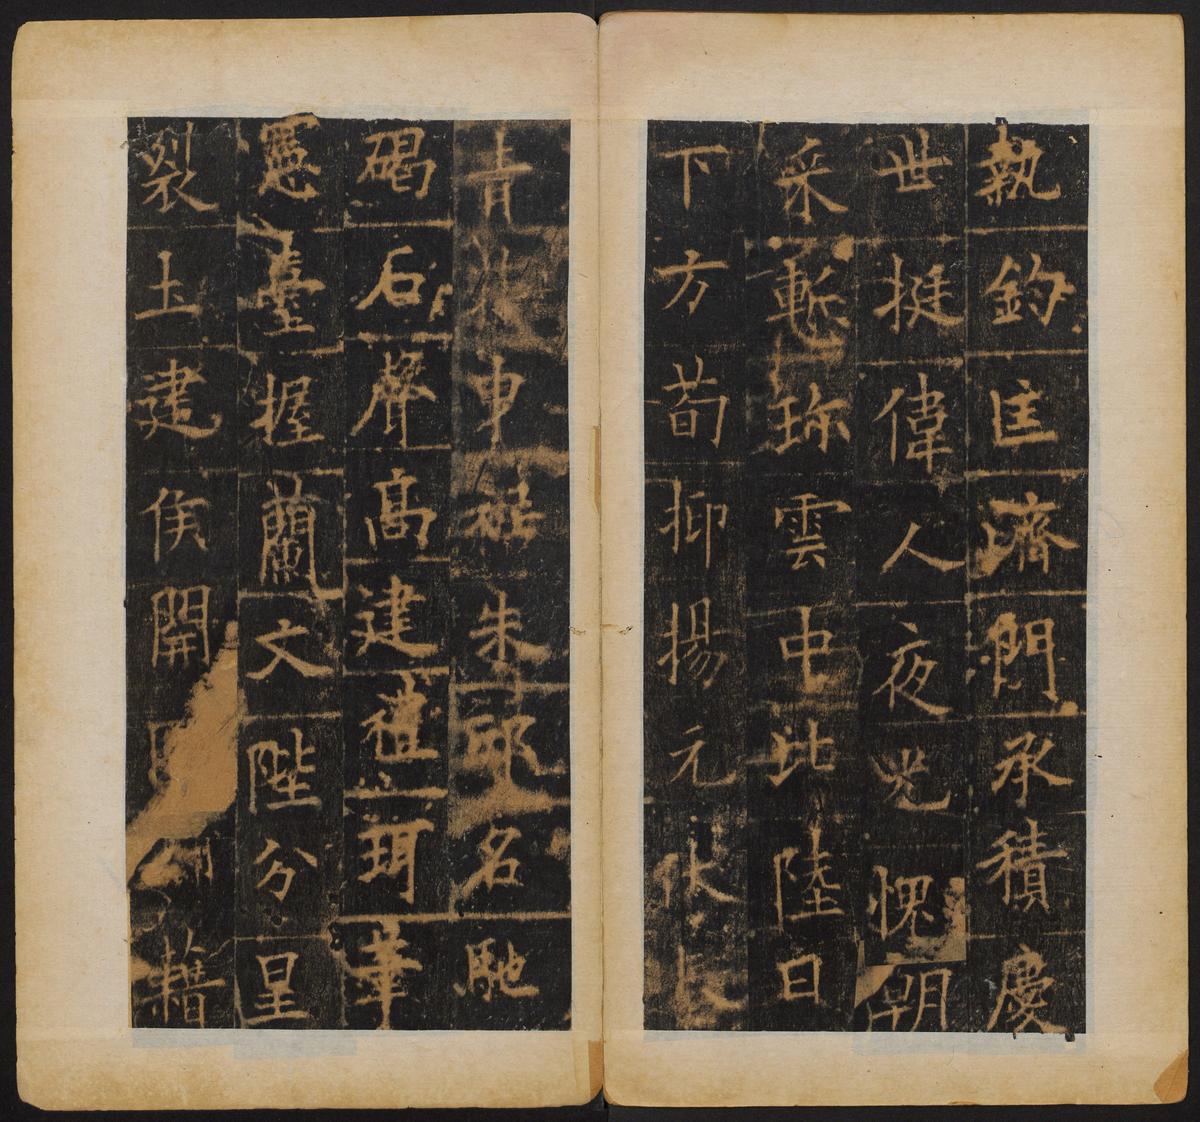 執鈞匡濟門承積慶
世挺偉人夜光愧朗
采慙珎雲中比陸日
下方荀抑揚元
青申朱邸名馳
碣石聲高建禮珥筆
憲臺握蘭文陛分星
裂土建侯開籍